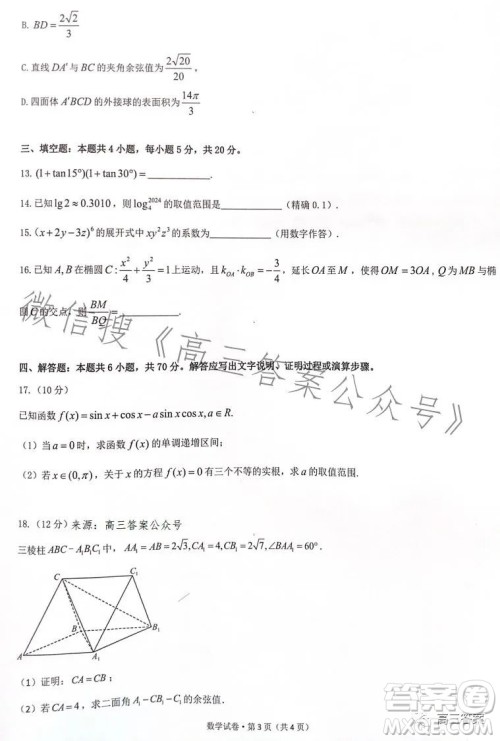 B. BD = 2√2/3
C.直线 DA′ 与 BC 的夹角余弦值为 2√20/20 ,
D.四面体 A′BCD 的外接球的表面积为 14π/3
三、填空题：本题共 4 小题，每小题 5 分，共 20 分。
13. (1+tan15°)(1+tan30°)=__________
14.已知 lg2≈0.3010，则 log₄²⁰²⁴ 的取值范围是__________（精确 0.1）.
15. (x+2y−3z)⁶ 的展开式中 xy²z³ 的系数为__________（用数字作答）.
16.已知 A, B 在椭圆 C: x²/4 + y²/3 = 1 上运动，且 k_OA·k_OB = −3/4，延长 OA 至 M，使得 OM = 3OA，Q 为 MB 与椭
圆 C 的交点，则 BM/BQ
四、解答题：本题共 6 小题，共 70 分。解答应写出文字说明、证明过程或演算步骤。
17.（10 分）
已知函数 f(x)=sin x+cos x−a sin x cos x, a∈R.
（1）当 a=0 时，求函数 f(x) 的单调递增区间；
（2）若 x∈(0,π)，关于 x 的方程 f(x)=a 有三个不等的实根，求 a 的取值范围.
18.（12 分）来源：高三答案公众号
三棱柱 ABC−A₁B₁C₁ 中，AA₁=AB=2√3, CA₁=CB₁=2√7, ∠BAA₁=60°.
C
C₁
B
B₁
A
A₁
（1）证明：CA=CB；
（2）若 CA=4，求二面角 A₁−CB₁−C₁ 的余弦值.
数学试卷·第 3 页（共 4 页）
微信搜《高三答案公众号》
答案圈
高三答案